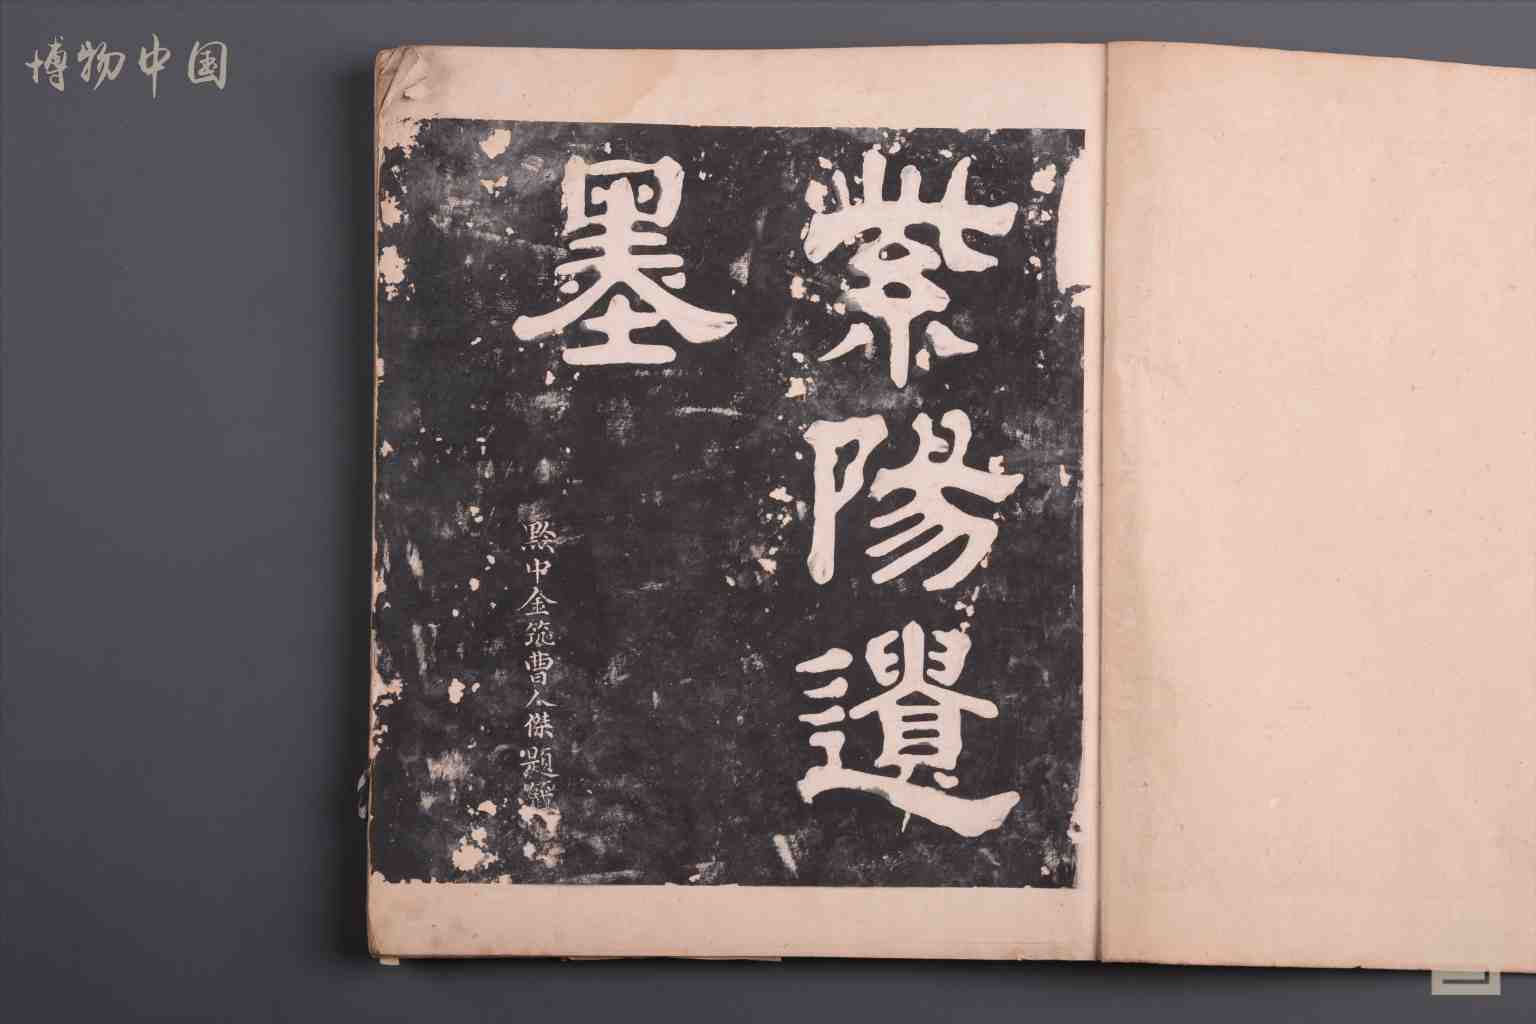 博物中国
紫陽遺
墨
黔中金筑曹人傑題